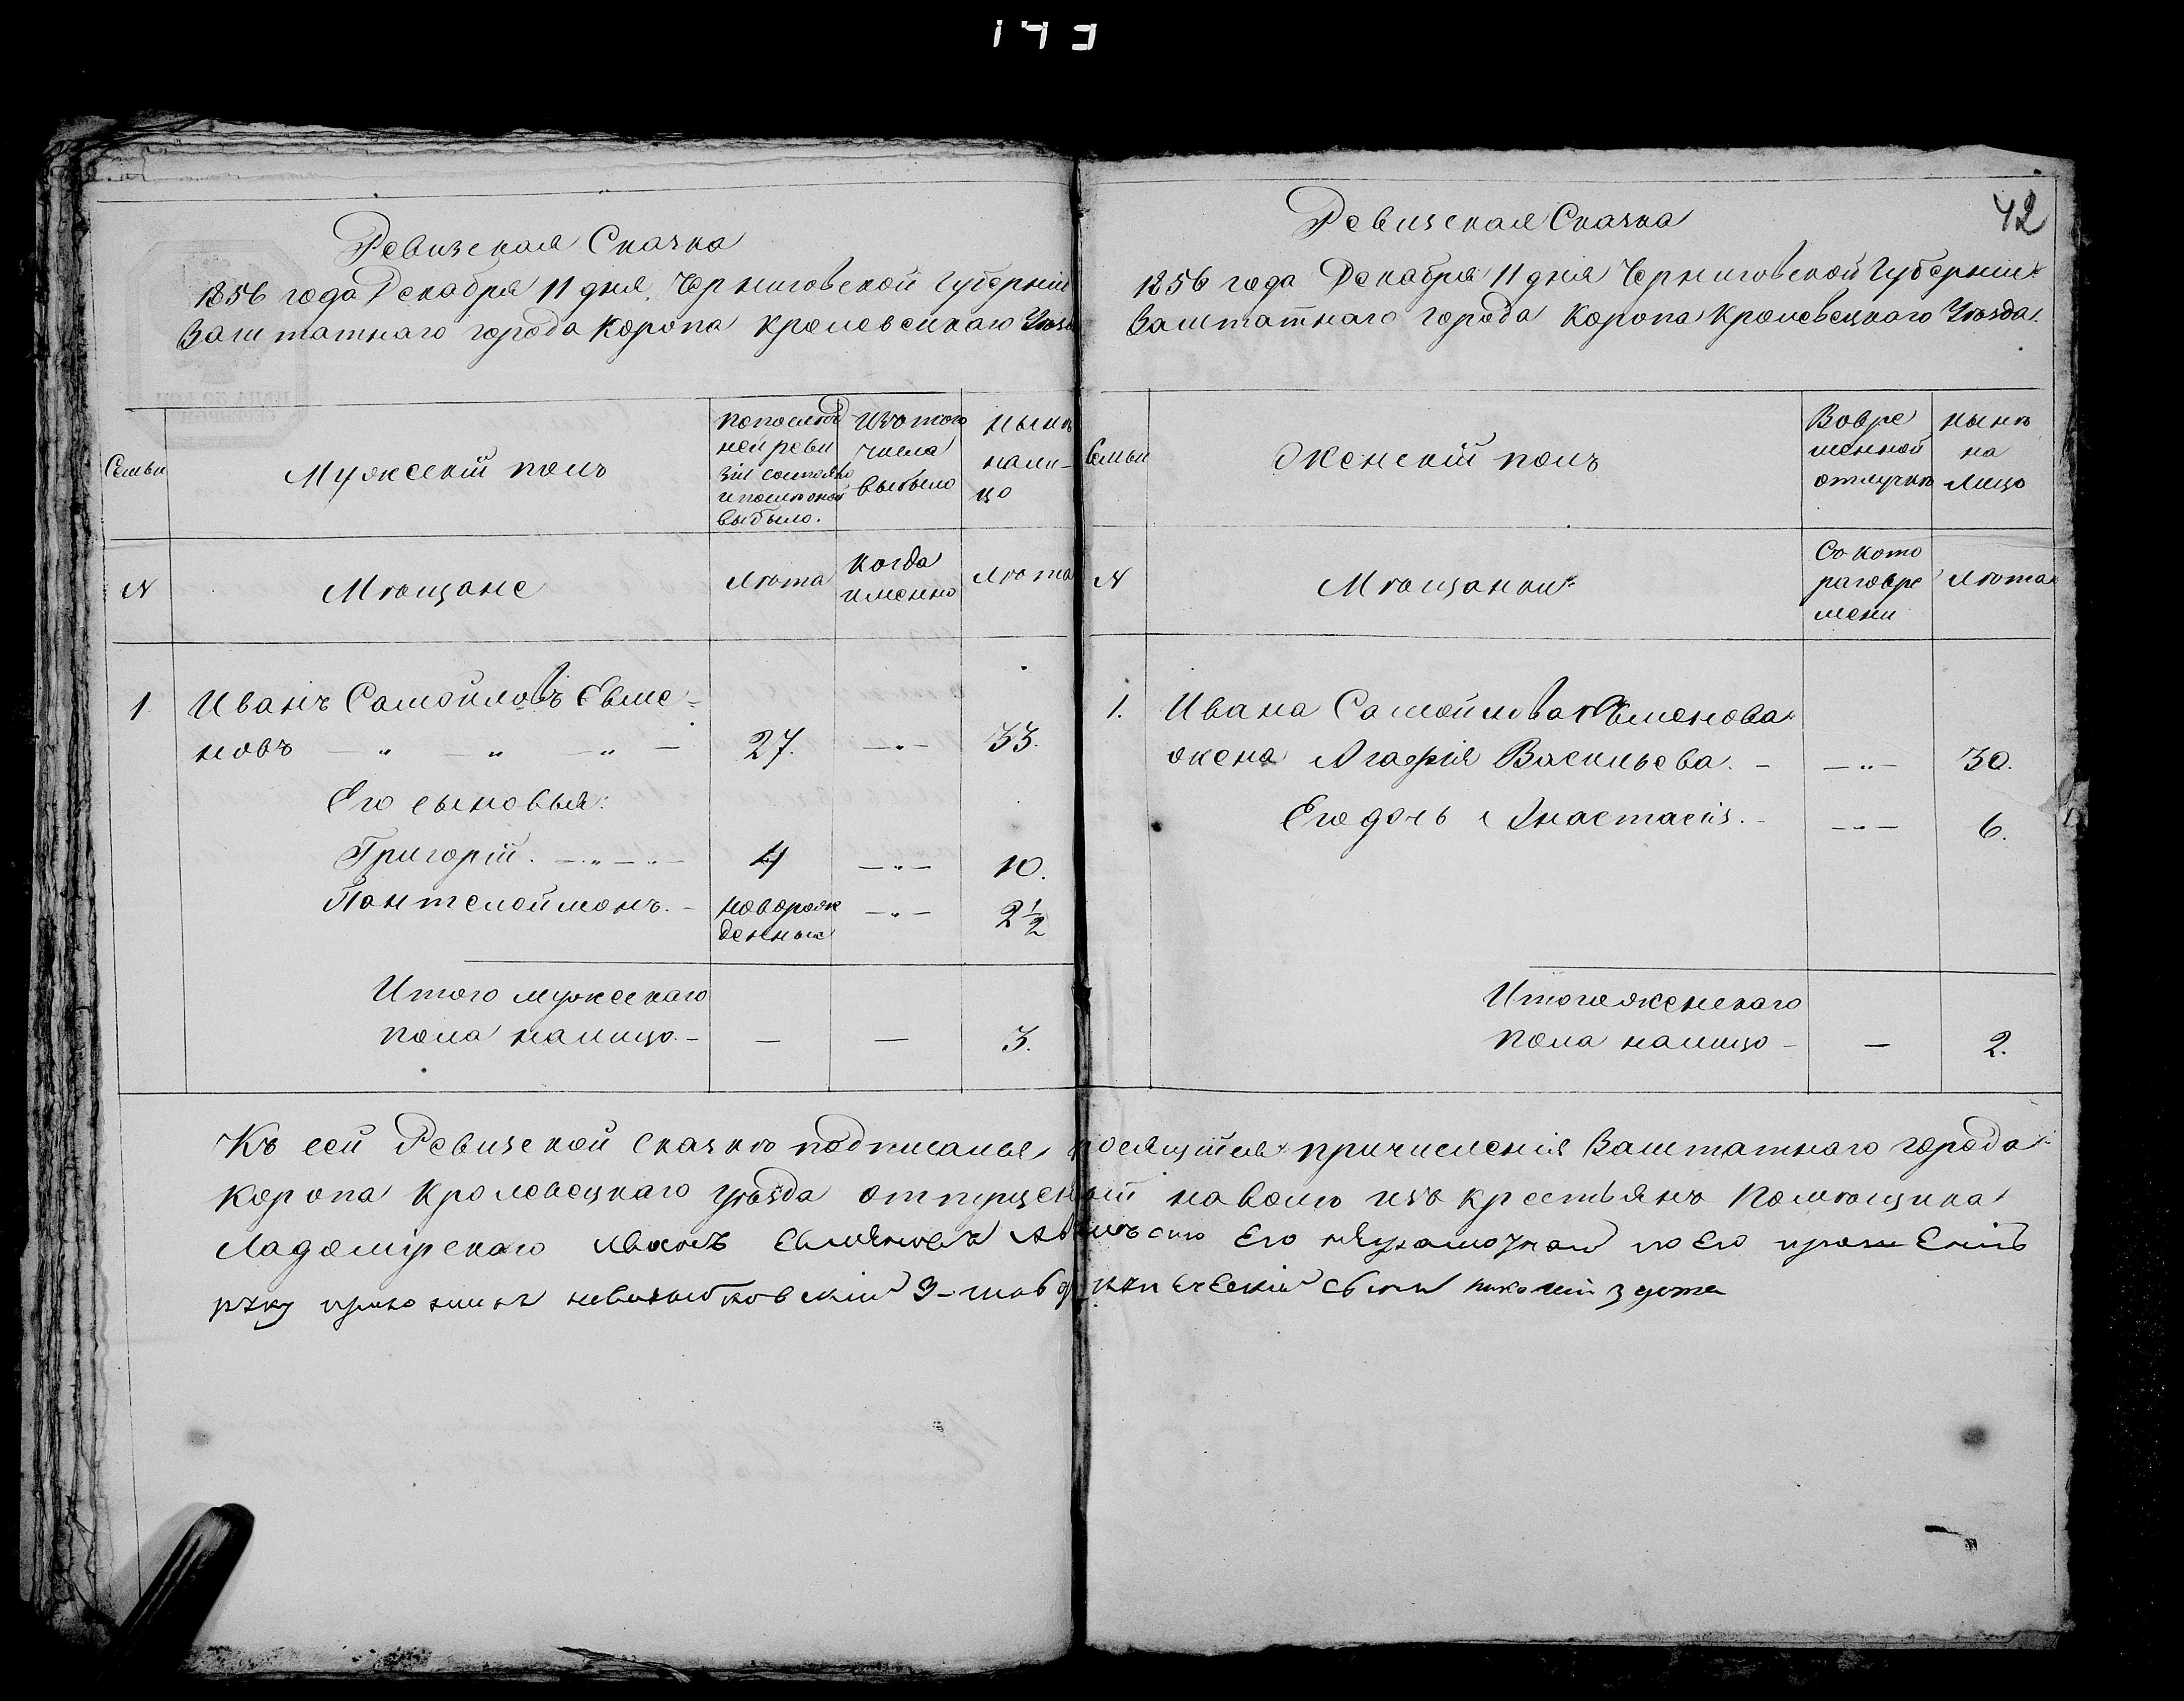 173
Ревизская Сказка
1856 года Декабря 11 дня, Черниговской Губерніи
Заштатнаго города Коропа Кролевецкаго Уезда
Семьи
Мужескій полъ
По послед
ней реви
зіи состояло
и после оной
выбыло.
Изъ того
числа
выбыло
Ныне
нали-
цо
N
Мещане
Лета
Когда
именно
Лета
1 Иванъ Самойловъ Евме-
новъ — „ — „ — „ — 27. — „ — 33.
Его сыновья:
Григорій. — „ — „ — 4 — „ — 10.
Пантелеймонъ. — новорож
денный — „ — 2 1/2
Итого мужескаго
пола налицо. — — — 3.
42
Ревизская Сказка
1856 года Декабря 11 дня Черниговской Губерніи
Заштатнаго города Коропа Кролевецкаго Уезда.
Семьи
Женскій полъ
Вовре
менной
отлучке
Ныне
на
лицо
N
Мещанки
Съ кото
раго вре
мени
Лета
1. Ивана Самойлова Евменова
жена Агафія Васильева. — — „ — 30.
Его дочь Анастасія. — — „ — 6.
Итого женскаго
пола налицо — — 2.
Къ сей Ревизской сказке подписался просящійся причисленія Заштатнаго города
Коропа Кролевецкаго уезда отпущенный на волю изъ крестьянъ Помещика
Ладомірскаго Иванъ Евменовъ А вместо Его неграмотнаго по Его прошенію
руку приложилъ 3-